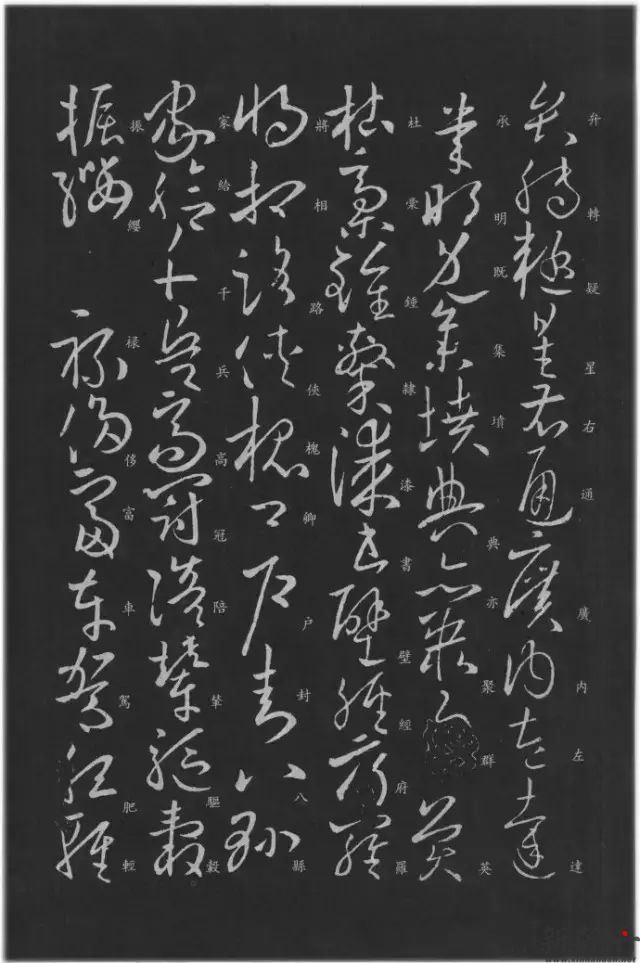 弁轉疑星右通廣内左達
承明既集墳典亦聚群英
杜稾鍾隸漆書壁經府羅
將相路俠槐卿户封八縣
家給千兵高冠陪輦驅轂
振纓祿侈富車駕肥輕